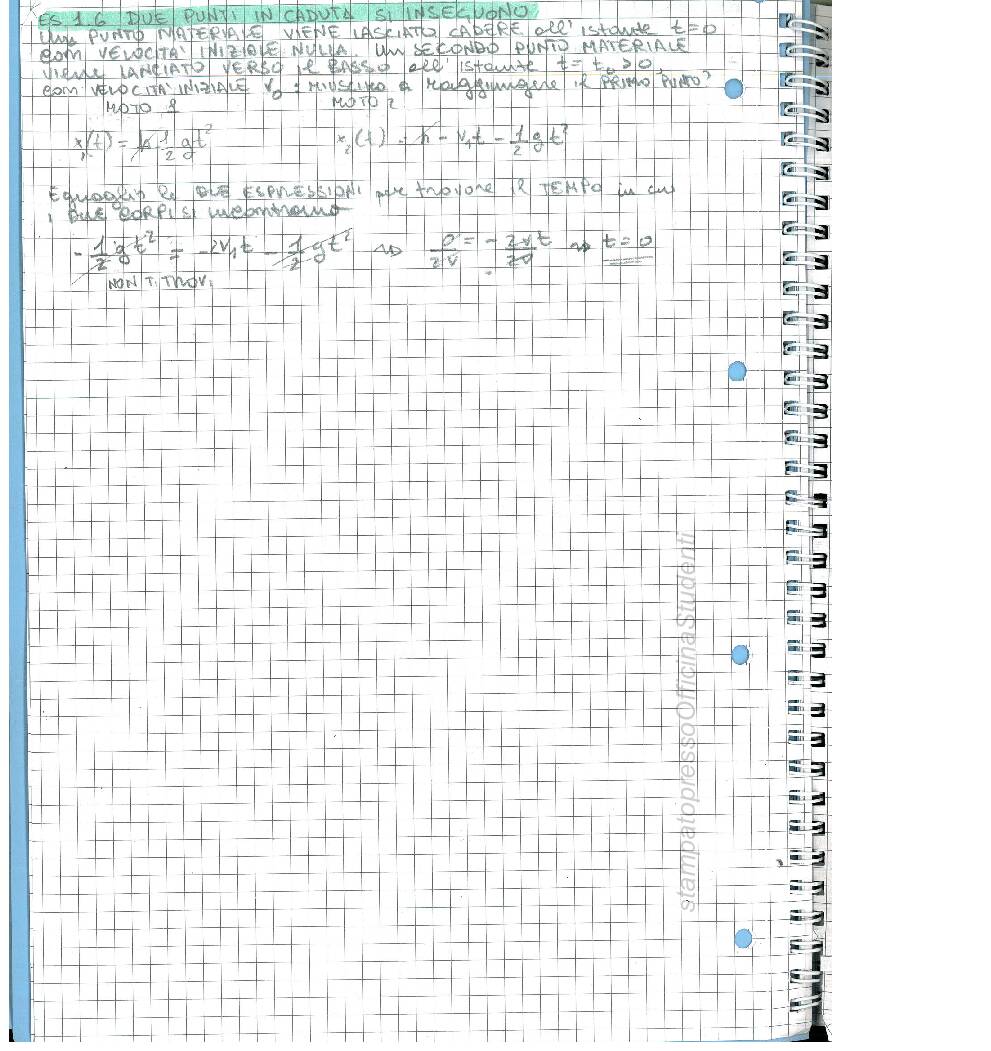 ES 1.6 DUE PUNTI IN CADUTA SI INSEGUONO
Un PUNTO MATERIALE VIENE LASCIATO CADERE all'istante t=0
com VELOCITA' INIZIALE NULLA. Un SECONDO PUNTO MATERIALE
viene LANCIATO VERSO il BASSO all'istante t= t₀ > 0
com VELOCITA' INIZIALE v₀ : RIUSCIRÀ a raggiungere il PRIMO PUNTO?
MOTO 1 MOTO 2
x₁(t) = h - 1/2 gt² x₂(t) = h - v₁t - 1/2 gt²
Eguaglio le DUE ESPRESSIONI per trovare il TEMPO in cui
i DUE CORPI SI incontrano
- 1/2 gt² = -2v₁t - 1/2 gt² ⇝ 0/2v = - 2vt/2v ⇝ t=0
NON TI TROVI
stampatopressoOfficinaStudenti